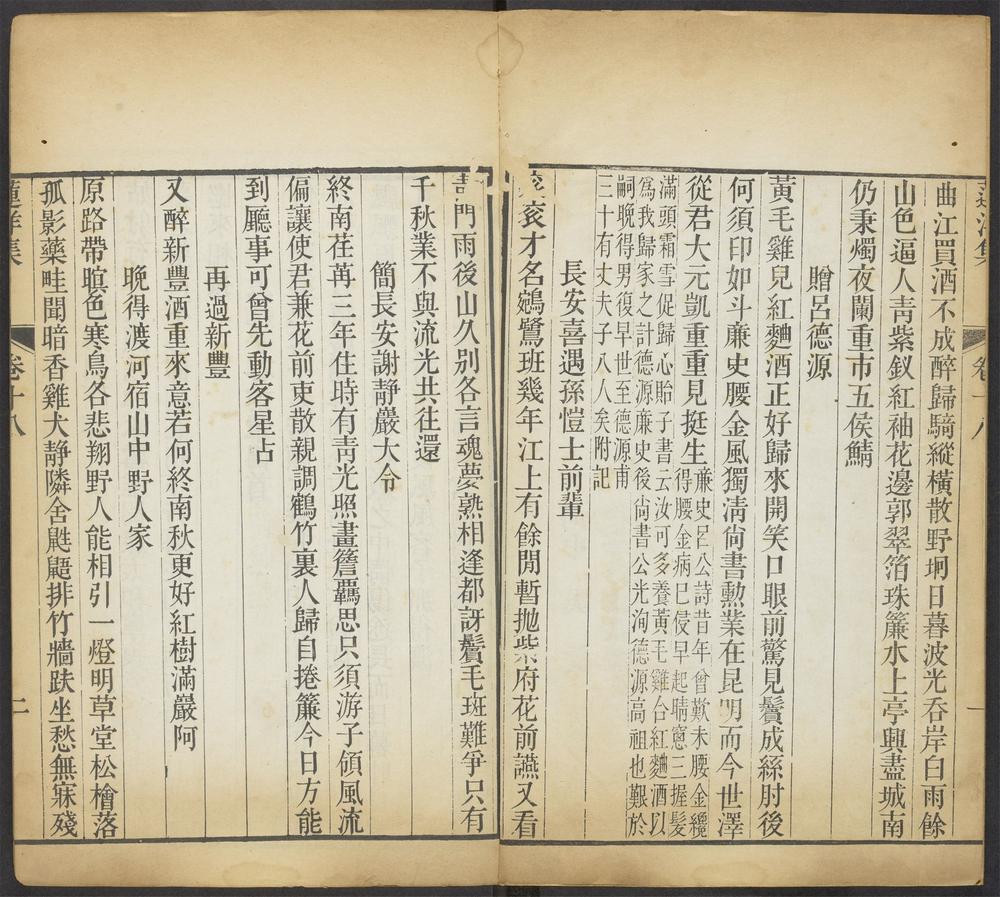 曲江買酒不成醉歸騎縱橫散野坰日暮波光吞岸白雨餘
山色逼人青紫釵紅袖花邊郭翠箔珠簾水上亭興盡城南
仍秉燭夜闌重市五侯鯖
贈呂德源
黃毛雞兒紅麯酒正好歸來開笑口眼前驚見鬢成絲肘後
何須印如斗廉史腰金風獨淸尙書勲業在昆明而今世澤
從君大元凱重重見挺生廉史呂公詩昔年曾歎未腰金纔
得腰金病已侵早起晴窓三握髮
滿頭霜雪促歸心貽子書云汝可多養黃毛雞台紅麯酒以
爲我歸家之計德源廉史後尙書公光洵德源高祖也艱於
嗣晚得男復早世至德源甫
三十有丈夫子八人矣附記
長安喜遇孫愷士前輩
亥才名鵷鷺班幾年江上有餘閒暫拋紫府花前讌又看
門雨後山久別各言魂夢熟相逢都訝鬢毛斑難爭只有
千秋業不與流光共往還
簡長安謝靜嚴大令
終南荏苒三年住時有靑光照畫簷羈思只須游子領風流
偏讓使君兼花前吏散親調鶴竹裏人歸自捲簾今日方能
到廳事可曾先動客星占
再過新豐
又醉新豐酒重來意若何終南秋更好紅樹滿巖阿
晚得渡河宿山中野人家
原路帶暝色寒鳥各悲翔野人能相引一燈明草堂松檜落
孤影藥畦聞暗香雞犬靜隣舍鼪鼯排竹牆趺坐愁無寐殘
集
卷十八
二
集
卷十八
一